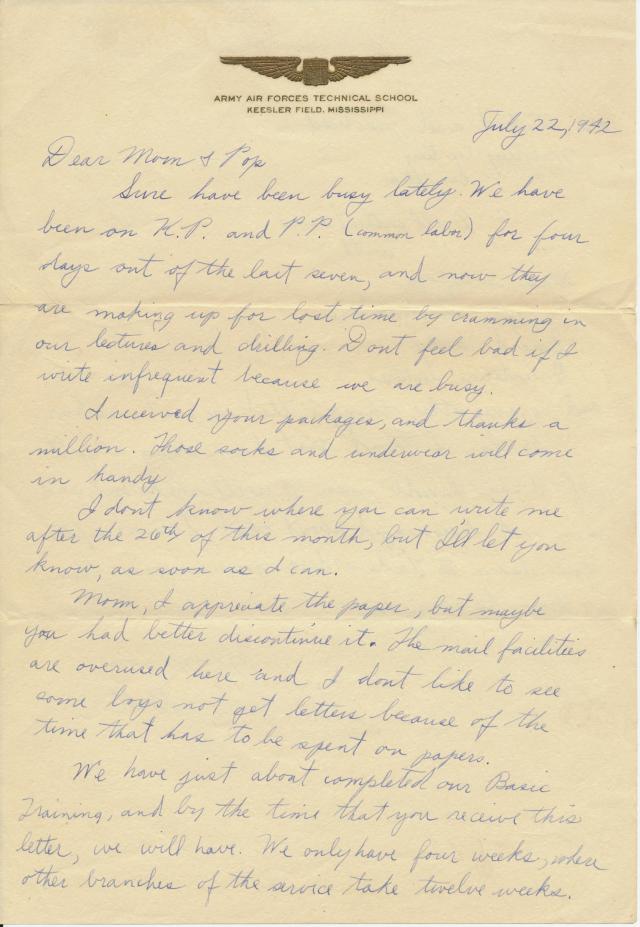 ARMY AIR FORCES TECHNICAL SCHOOL
KEESLER FIELD, MISSISSIPPI
July 22, 1942
Dear Mom & Pop
Sure have been busy lately. We have
been on K.P. and P.P. (common labor) for four
days out of the last seven, and now they
are making up for lost time by cramming in
our lectures and drilling. Dont feel bad if I
write infrequent because we are busy.
I received your packages, and thanks a
million. Those socks and underwear will come
in handy
I dont know where you can write me
after the 26th of this month, but I'll let you
know, as soon as I can.
Mom, I appreciate the paper, but maybe
you had better discontinue it. The mail facilities
are overused here and I dont like to see
some boys not get letters because of the
time that has to be spent on papers.
We have just about completed our Basic
Training, and by the time that you receive this
letter, we will have. We only have four weeks, where
other branches of the service take twelve weeks.